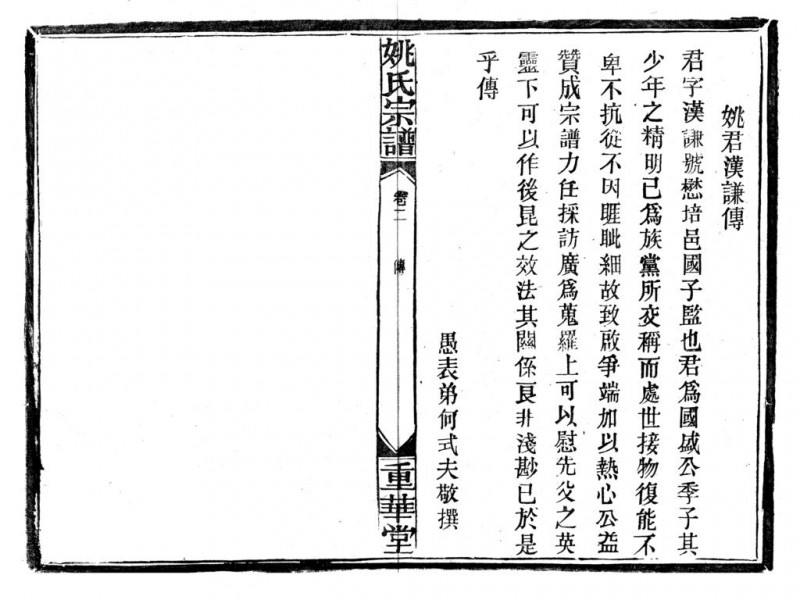 姚君漢謙傳
君字漢謙號懋培邑國子監也君爲國威公季子其
少年之精明已爲族黨所交稱而處世接物復能不
卑不抗從不因睚眦細故致啟爭端加以熱心公益
贊成宗譜力任採訪廣爲蒐羅上可以慰先父之英
靈下可以作後昆之效法其關係良非淺尠已於是
乎傳
愚表弟何式夫敬撰
姚氏宗譜
卷二
傳
重華堂